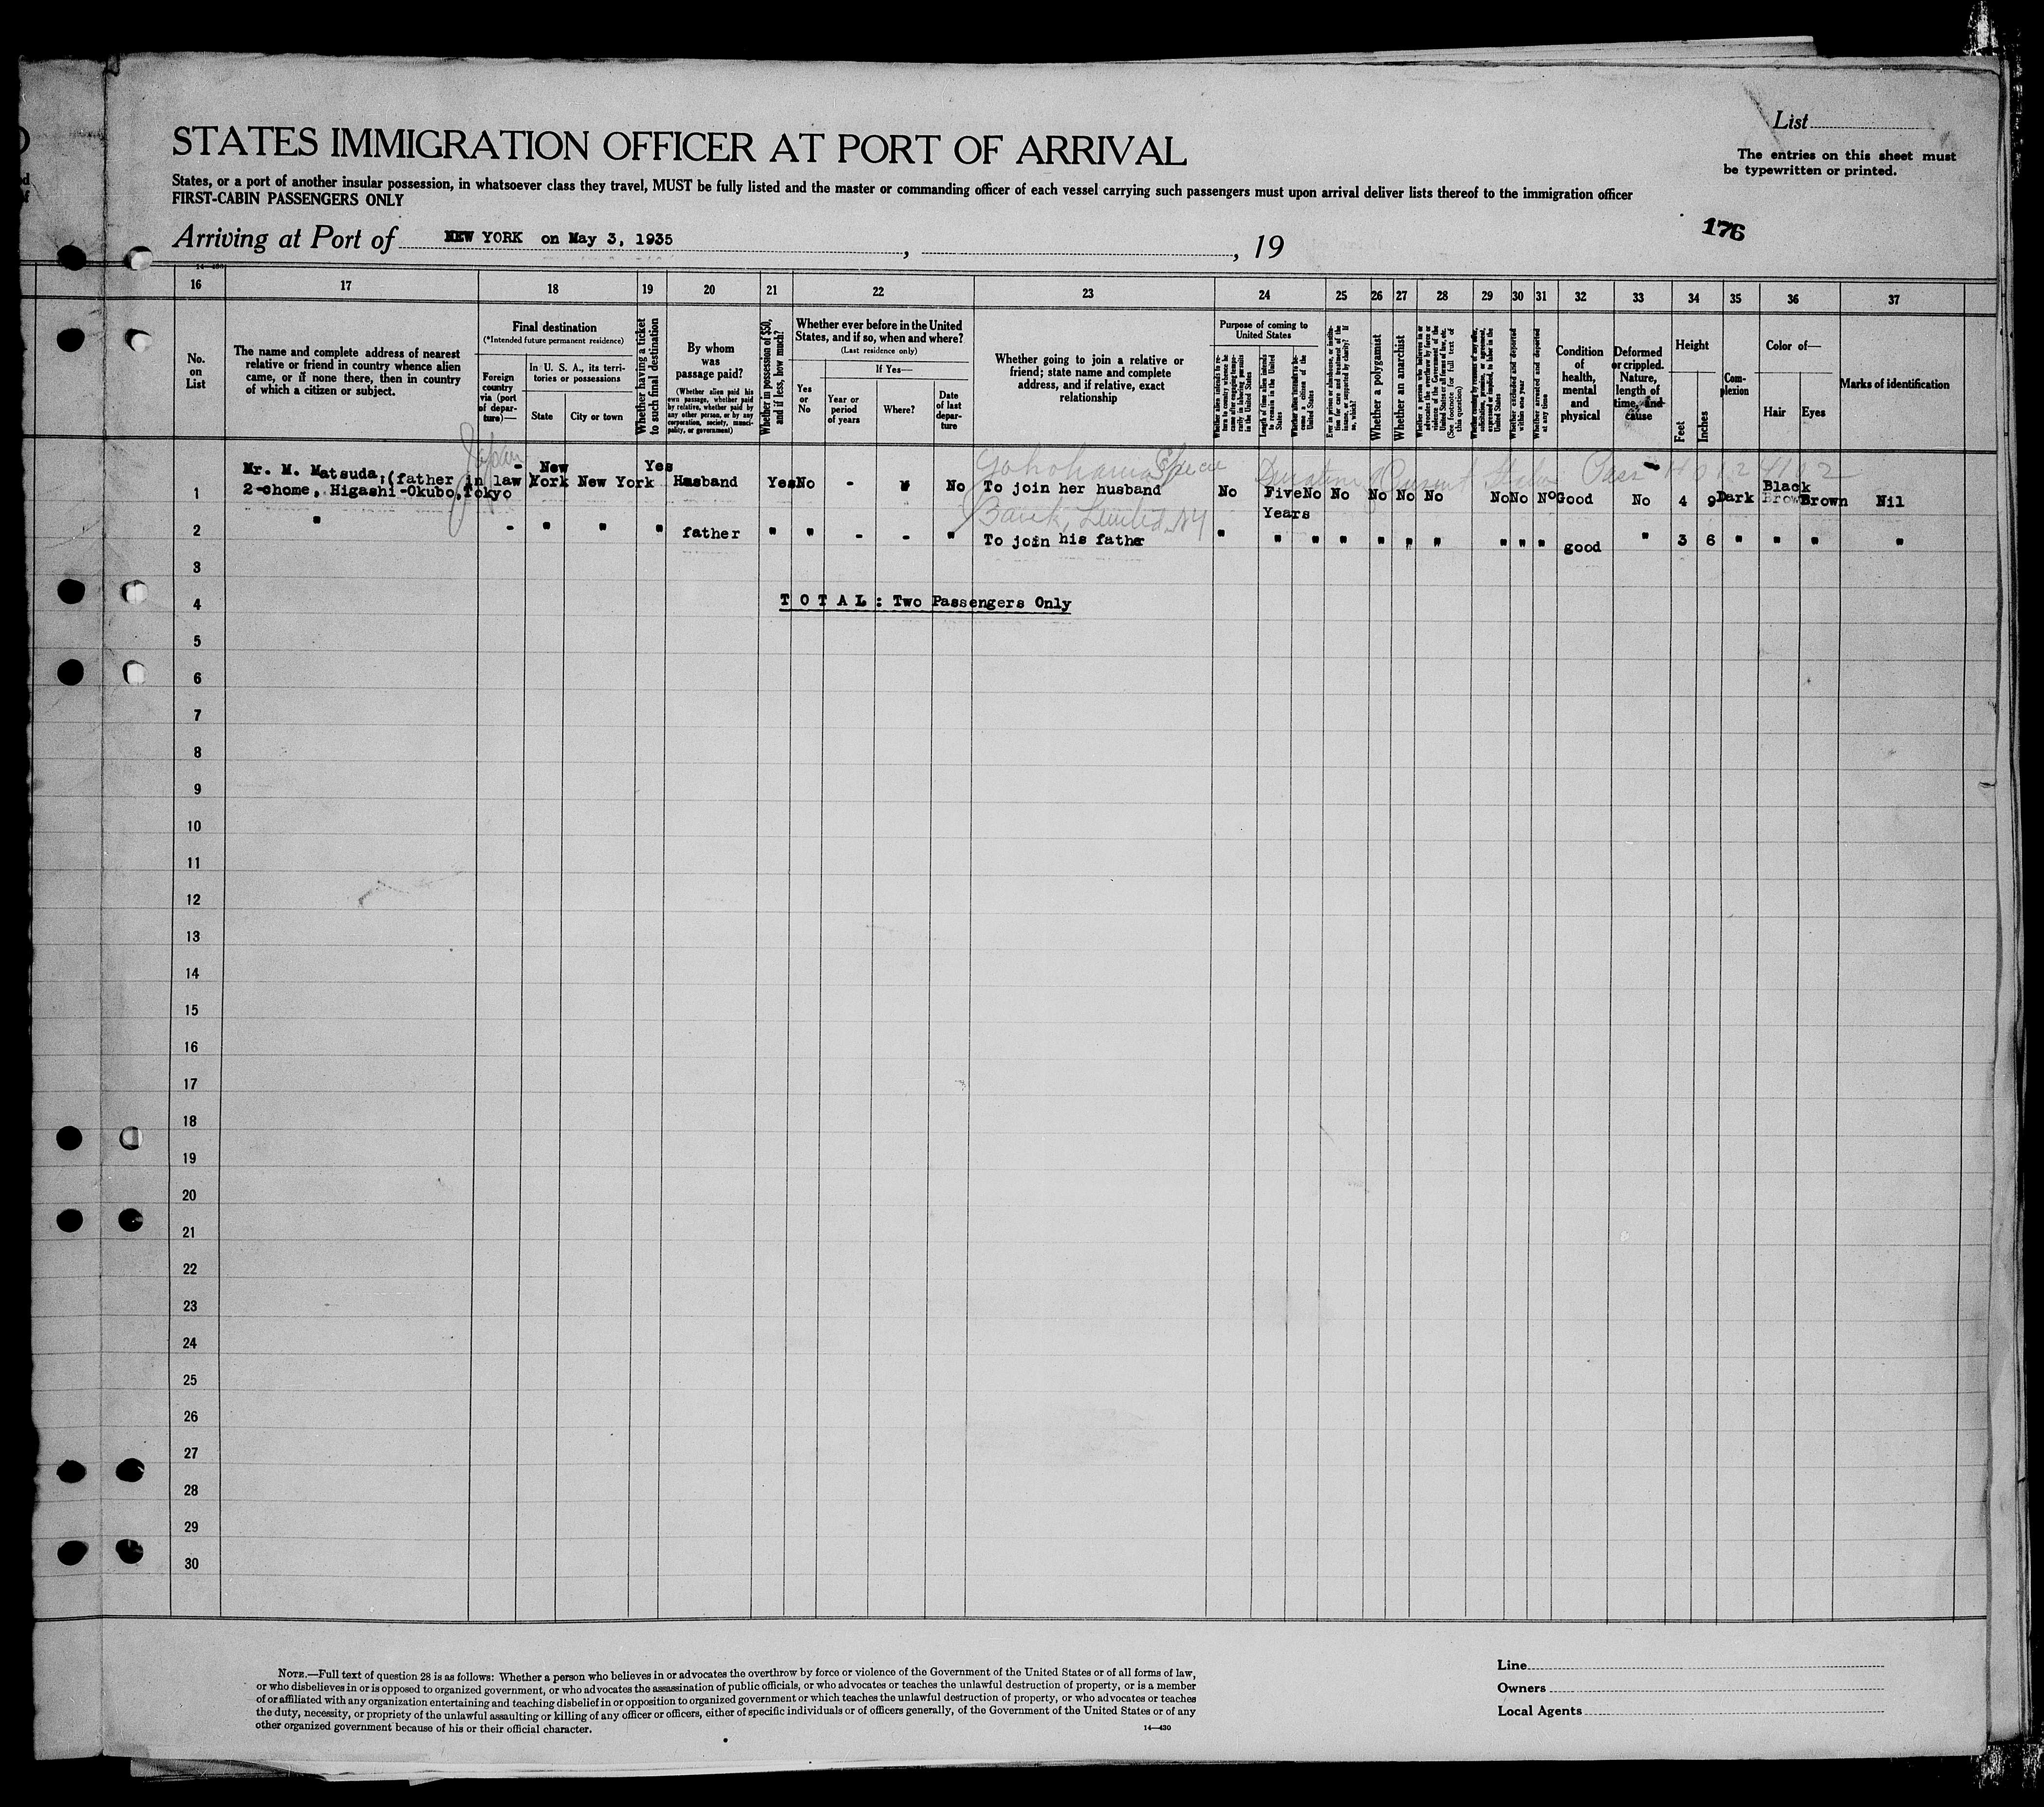 List
STATES IMMIGRATION OFFICER AT PORT OF ARRIVAL
The entries on this sheet must
be typewritten or printed.
States, or a port of another insular possession, in whatsoever class they travel, MUST be fully listed and the master or commanding officer of each vessel carrying such passengers must upon arrival deliver lists thereof to the immigration officer
FIRST-CABIN PASSENGERS ONLY
176
Arriving at Port of NEW YORK on May 3, 1935 , , 19
14—430
16 17 18 19 20 21 22 23 24 25 26 27 28 29 30 31 32 33 34 35 36 37
No. on List
The name and complete address of nearest
relative or friend in country whence alien
came, or if none there, then in country
of which a citizen or subject.
Final destination
(*Intended future permanent residence)
Foreign country via (port of departure)—
In U. S. A., its territories or possessions
State City or town
Whether having a ticket
to such final destination
By whom
was
passage paid?
(Whether alien paid his
own passage, whether paid
by relative, whether paid by
any other person, or by any
corporation, society, munici-
pality, or government)
Whether in possession of $50,
and if less, how much?
Whether ever before in the United
States, and if so, when and where?
(Last residence only)
Yes or No
If Yes—
Year or period of years
Where?
Date of last depar-ture
Whether going to join a relative or
friend; state name and complete
address, and if relative, exact
relationship
Purpose of coming to
United States
Whether alien intends to re-
turn to country whence he
came after engaging tempo-
rarily in laboring pursuits
in the United States
Length of time alien intends
to remain in the United
States
Whether alien intends to be-
come a citizen of the
United States
Ever in prison or almshouse, or institu-
tion for care and treatment of the
insane, or supported by charity? If
so, which?
Whether a polygamist
Whether an anarchist
(See footnote for full text of
this question)
Whether excluded and deported
within one year
Whether arrested and deported
at any time
Condition
of
health,
mental
and
physical
Deformed
or crippled.
Nature,
length of
time, and
cause
Height
Feet Inches
Com-
plexion
Color of—
Hair Eyes
Marks of identification
Japan
Yokohama Specie
Duration Present Status Pass
Bank, Limited, NY
1 Mr. M. Matsuda,(father in law - New Yes
2-chome, Higashi-Okubo,Tokyo York New York Husband Yes No - " No To join her husband No Five No No No No No No No No Good No 4 9 Dark Black Brown Nil
Years
2 " - " " " father " " - - " To join his father " " " " " " " " " " good " 3 6 " " " "
3
4 T O T A L : Two Passengers Only
5
6
7
8
9
10
11
12
13
14
15
16
17
18
19
20
21
22
23
24
25
26
27
28
29
30
NOTE.—Full text of question 28 is as follows: Whether a person who believes in or advocates the overthrow by force or violence of the Government of the United States or of all forms of law,
or who disbelieves in or is opposed to organized government, or who advocates the assassination of public officials, or who advocates or teaches the unlawful destruction of property, or is a member
of or affiliated with any organization entertaining and teaching disbelief in or opposition to organized government or which teaches the unlawful destruction of property, or who advocates or teaches
the duty, necessity, or propriety of the unlawful assaulting or killing of any officer or officers, either of specific individuals or of officers generally, of the Government of the United States or of any
other organized government because of his or their official character.
14—430
Line
Owners
Local Agents